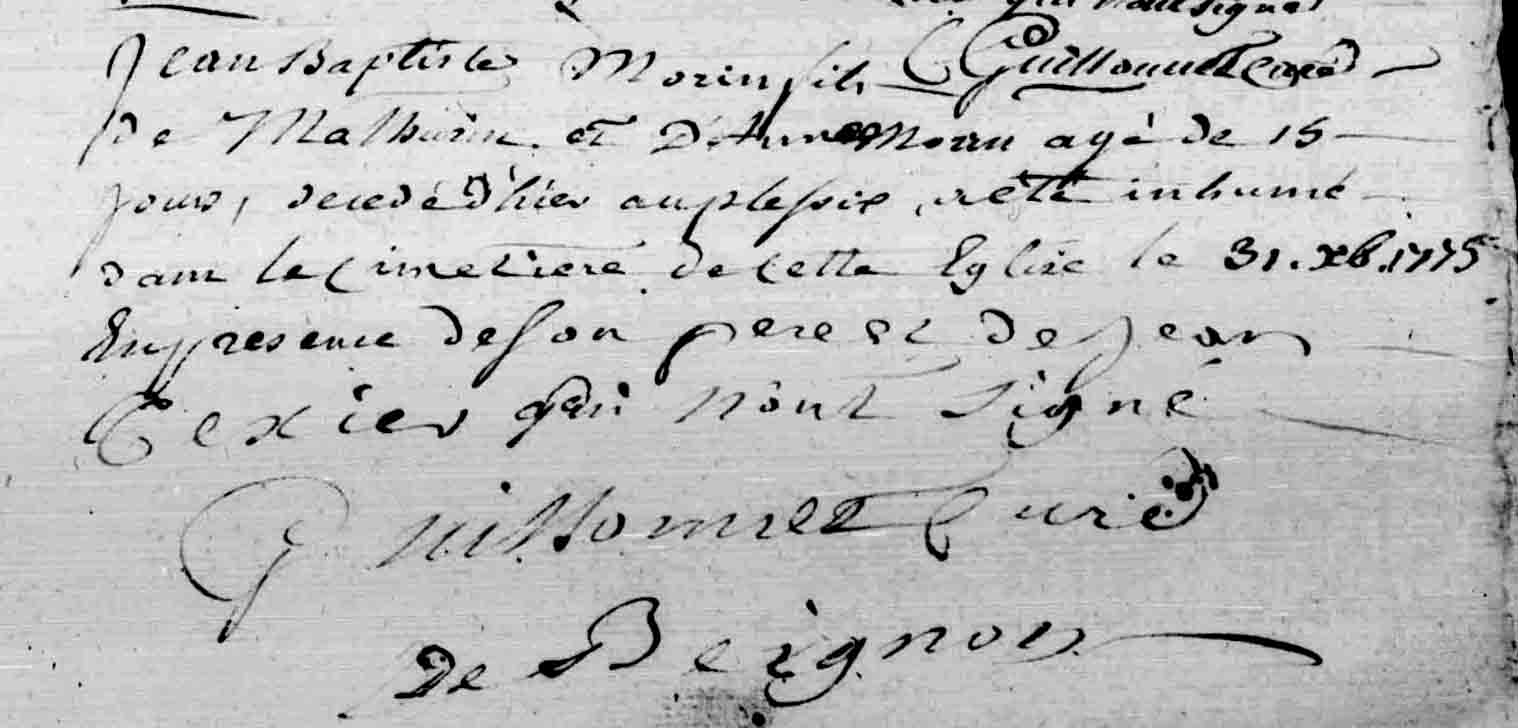 qui n'ont signé
Jean Baptiste Morin fils Guillonnet Curé
de Mathurin et D'Anne Morin agé de 15
jours, decedé d'hier au plessis, a été inhumé
dans le Cimetiere de cette Eglise le 31. Xb. 1775
En presence de son pere et de Jean
Texier qui n'ont signé
Guillonnet Curé
De Beignon